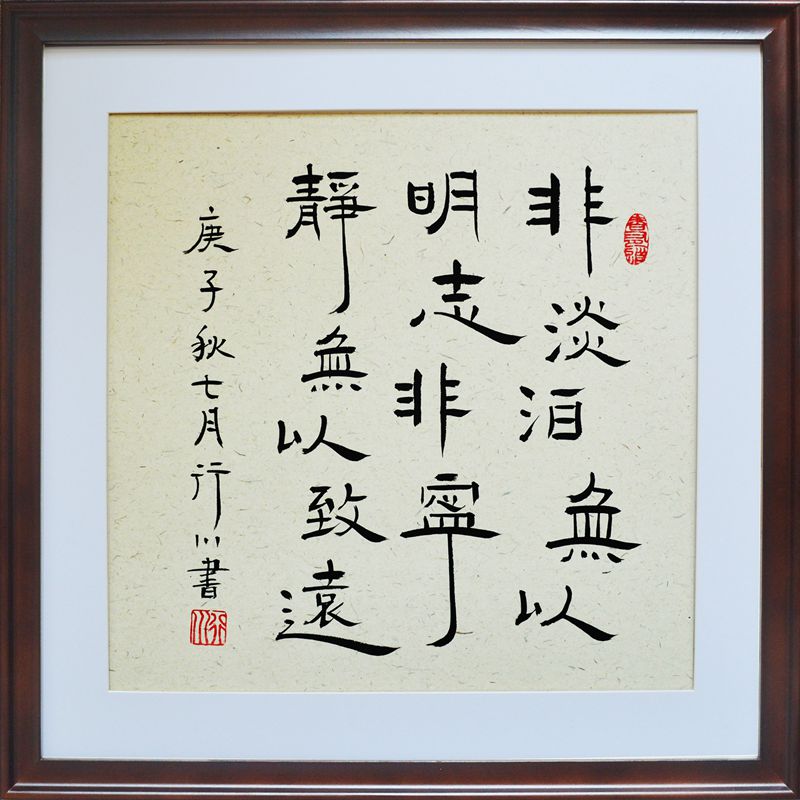 非淡泊無以
明志非寧
靜無以致遠
庚子秋七月行川書